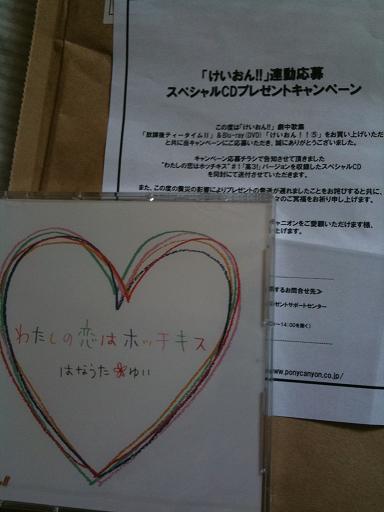 「けいおん!!」連動応募
スペシャルCDプレゼントキャンペーン
この度は「けいおん!!」劇中歌集
「放課後ティータイムⅡ」&Blu-ray(DVD)「けいおん!!⑤」をお買い上げいただ
と共に当キャンペーンにご応募いただき、誠にありがとうございました。
キャンペーン応募チラシで告知させて頂きました
"わたしの恋はホッチキス"#1「高3!」バージョンを収録したスペシャルCD
を同封にて送付させていただきます。
また、この度の震災の影響によりプレゼントの発送が遅れましたことをお詫びすると共に、
々のご冥福をお祈り申し上げます。
ャニオンをご愛顧いただけます様、
げます。
するお問合せ先≫
ゼントサポートセンター
~14:00を除く)
www.ponycanyon.co.jp/
わたしの恋はホッチキス
はなうた ゆい